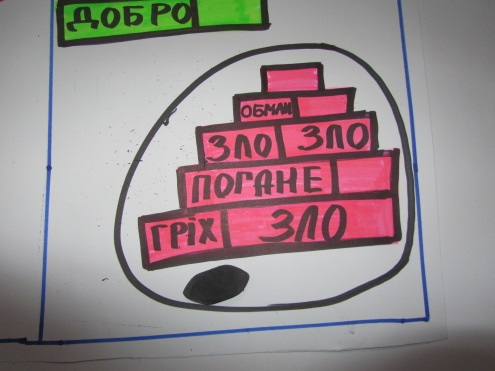 ДОБРО
ОБМАН
ЗЛО ЗЛО
ПОГАНЕ
ГРІХ ЗЛО